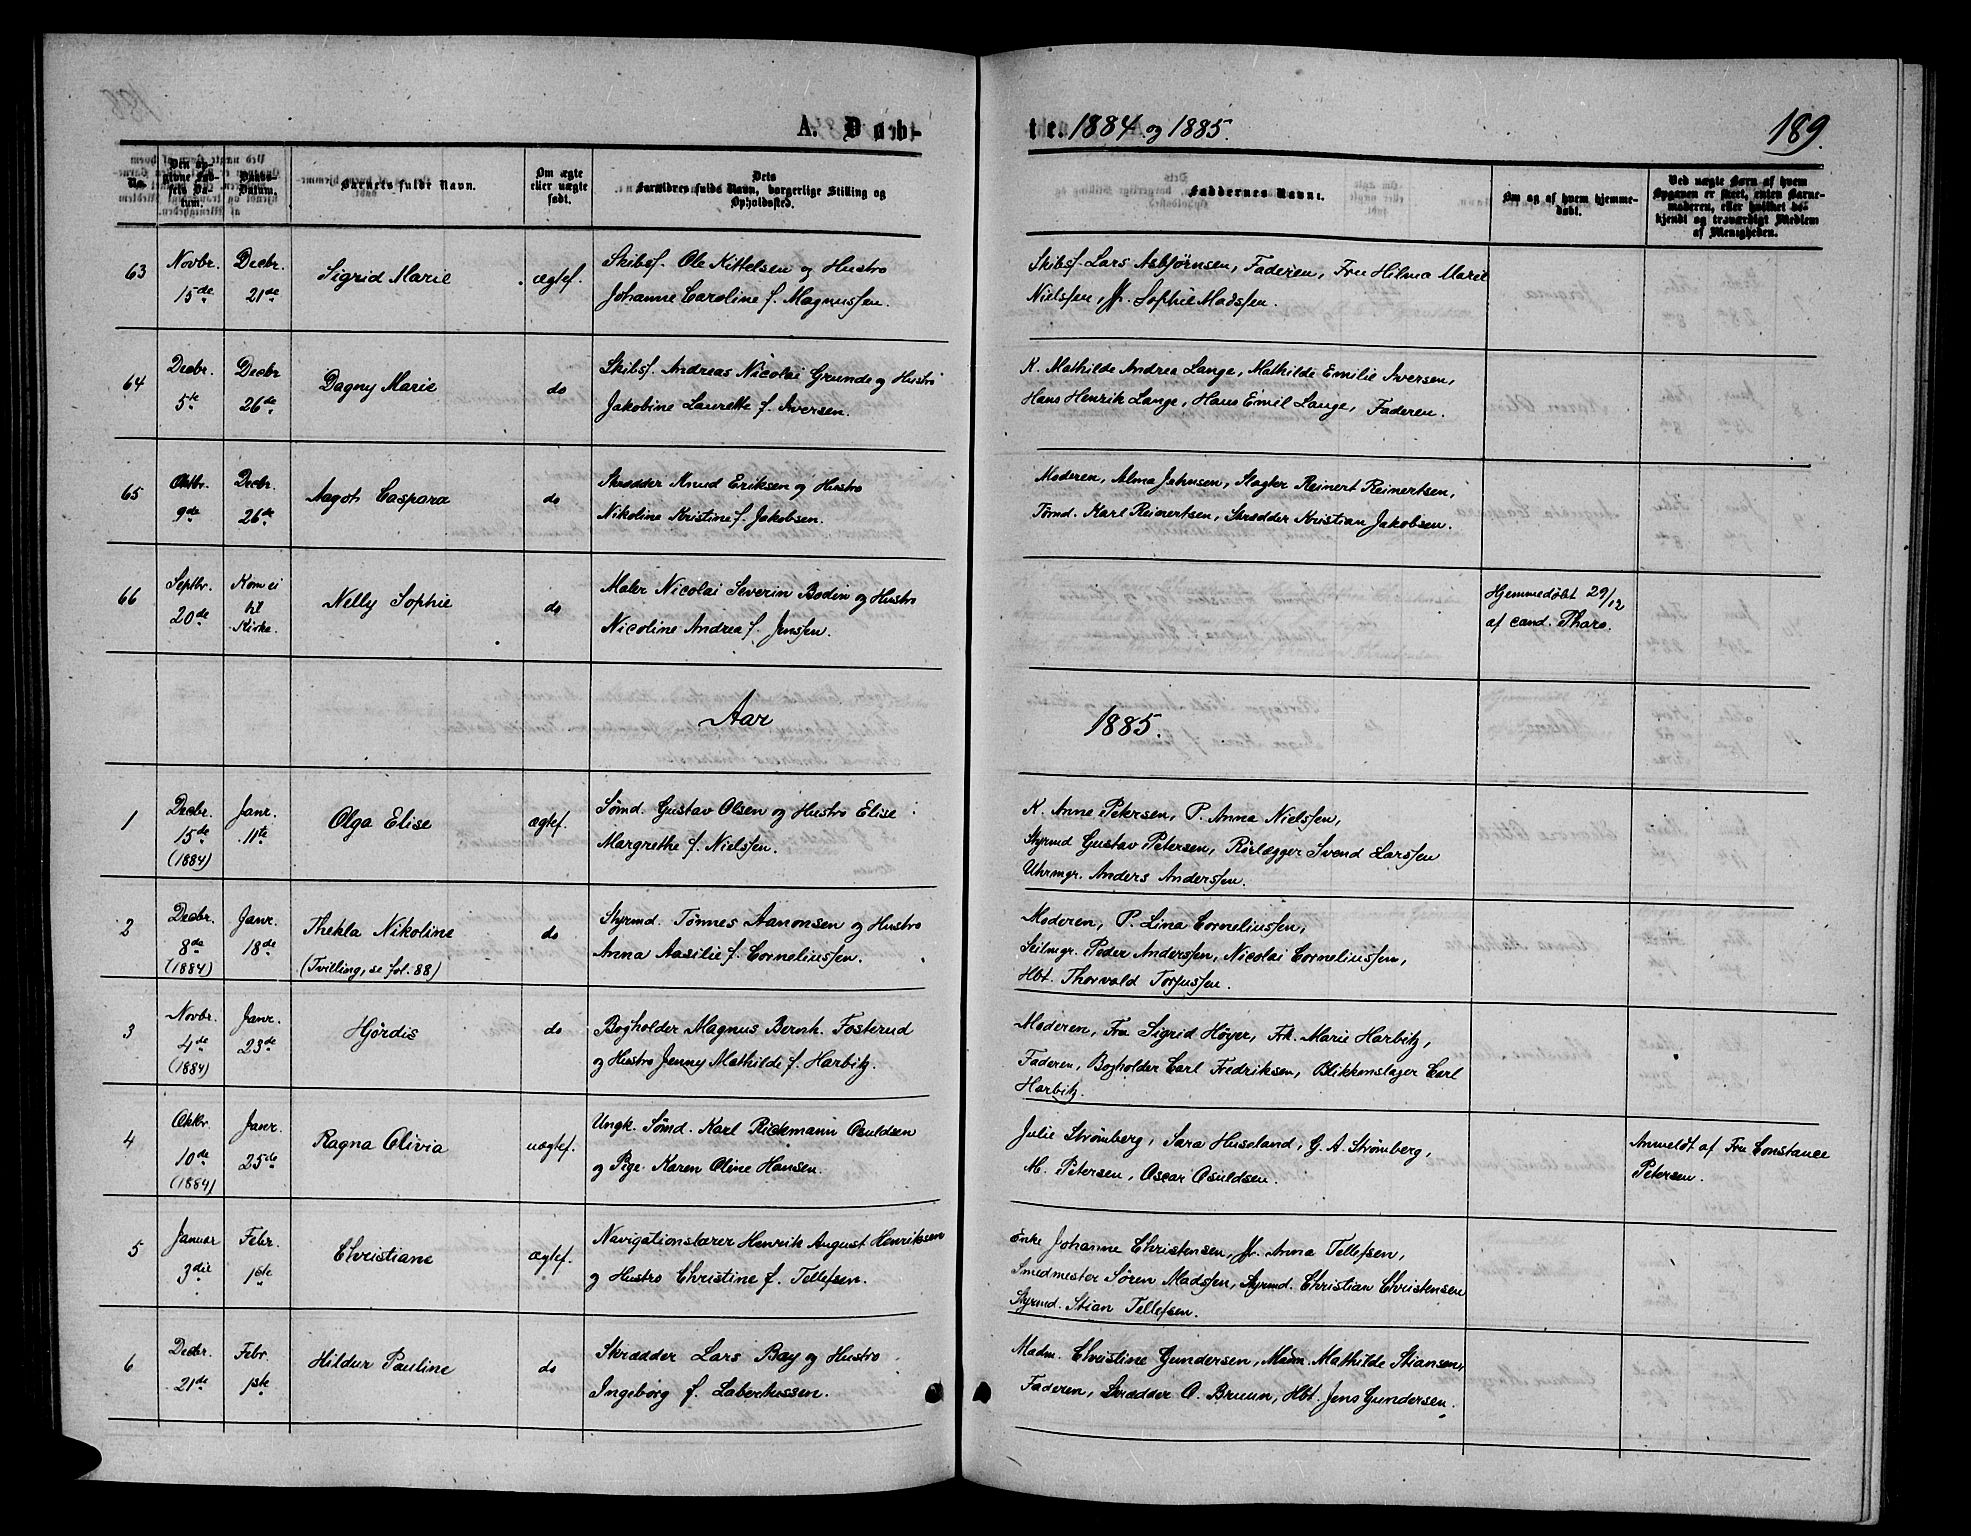 A. Døbte 1884 og 1885.
189.
No.
Den opgivne Fødsels Datum.
Daabs-Datum.
Barnets fulde Navn.
Om ægte eller uægte født.
Dets Forældres fulde Navn, borgerlige Stilling og Opholdssted.
Faddernes Navne.
Om og af hvem hjemmedøbt.
Ved uægte Børn af hvem Opgaven er skeet, enten Barnemoderen, eller hvilket bekjendt og troværdigt Medlem af Menigheden.
63 Novbr. 15de Decbr. 21de Sigrid Marie ægtef.
Skibsf. Ole Kittelsen og Hustro
Johanne Caroline f. Magnussen.
Skibsf. Lars Asbjørnsen, Faderen, Fru Hilma Marie
Nielssen, Jfr. Sophie Madssen.
64 Decbr. 5te Decbr 26de Dagny Marie do
Skibsf. Andreas Nicolai Grunde og Hustro
Jakobine Laurette f. Iversen.
K. Mathilde Andrea Lange, Mathilde Emilie Iversen,
Hans Henrik Lange, Hans Emil Lange, Faderen.
65 Oktbr. 9de Decbr. 26de Aagot Caspara do
Skrædder Knud Eriksen og Hustro
Nikoline Kristine f. Jakobsen.
Moderen, Alma Johnsen, Slagter Reinert Reinertsen,
Tømd. Karl Reinertsen, Skrædder Kristian Jakobsen.
66 Septbr. 20de Kom ei til Kirke. Nelly Sophie do
Maler Nicolai Severin Bodin og Hustro
Nicoline Andrea f. Jenssen.
Hjemmedøbt 29/12
af cand. Tharo.
Aar 1885.
1 Decbr. 15de (1884) Janr. 11te Olga Elise ægtef.
Sømd. Gustav Olsen og Hustro Elise
Margrethe f. Nielssen.
K. Anne Petersen, P. Anna Nielssen,
Styrmd Gustav Petersen, Rørlægger Svend Larssen
Uhrmgr. Anders Anderssen.
2 Decbr. 8de (1884) Janr. 18de Thekla Nikoline do
(Tvilling, se fol. 88)
Styrmd. Tønnes Aanonsen og Hustro
Anna Aasilie f. Corneliussen.
Moderen, P. Lina Corneliussen,
Seilmgr. Peder Anderssen, Nicolai Corneliussen,
Hbt. Thorvald Torjussen.
3 Novbr. 4de (1884) Janr. 23de Hjørdis do
Bogholder Magnus Bernh. Fosterud
og Hustro Jenny Mathilde f. Harbitz.
Moderen, Fru Sigrid Høyer, Frk. Marie Harbitz,
Faderen, Bogholder Carl Fredriksen, Blikkenslager Carl
Harbitz.
4 Oktbr. 10de (1884) Janr. 25de Ragna Olivia uægtef.
Ungk. Sømd. Karl Rickmann Osuldsen
og Pige Karen Oline Hansen.
Julie Strømberg, Sara Huseland, G. A. Strømberg,
M. Petersen, Oscar Osuldsen.
Anmeldt af Fru Constance
Petersen.
5 Januar 3die Febr. 1ste Christiane ægtef.
Navigationslærer Henrik August Henriksen
og Hustro Christine f. Tellefsen.
Enke Johanne Christensen, Jfr. Anna Tellefsen,
Smedmester Søren Madssen, Styrmd. Christian Christensen
Styrmd. Stian Tellefsen.
6 Decbr. 21de Febr. 1ste Hildur Pauline do
Skrædder Lars Bay og Hustro
Ingeborg f. Laberhussen.
Madm. Christine Gundersen, Madm. Mathilde Stiansen,
Faderen, Skrædder O. Bruun, Hbt. Jens Gundersen.